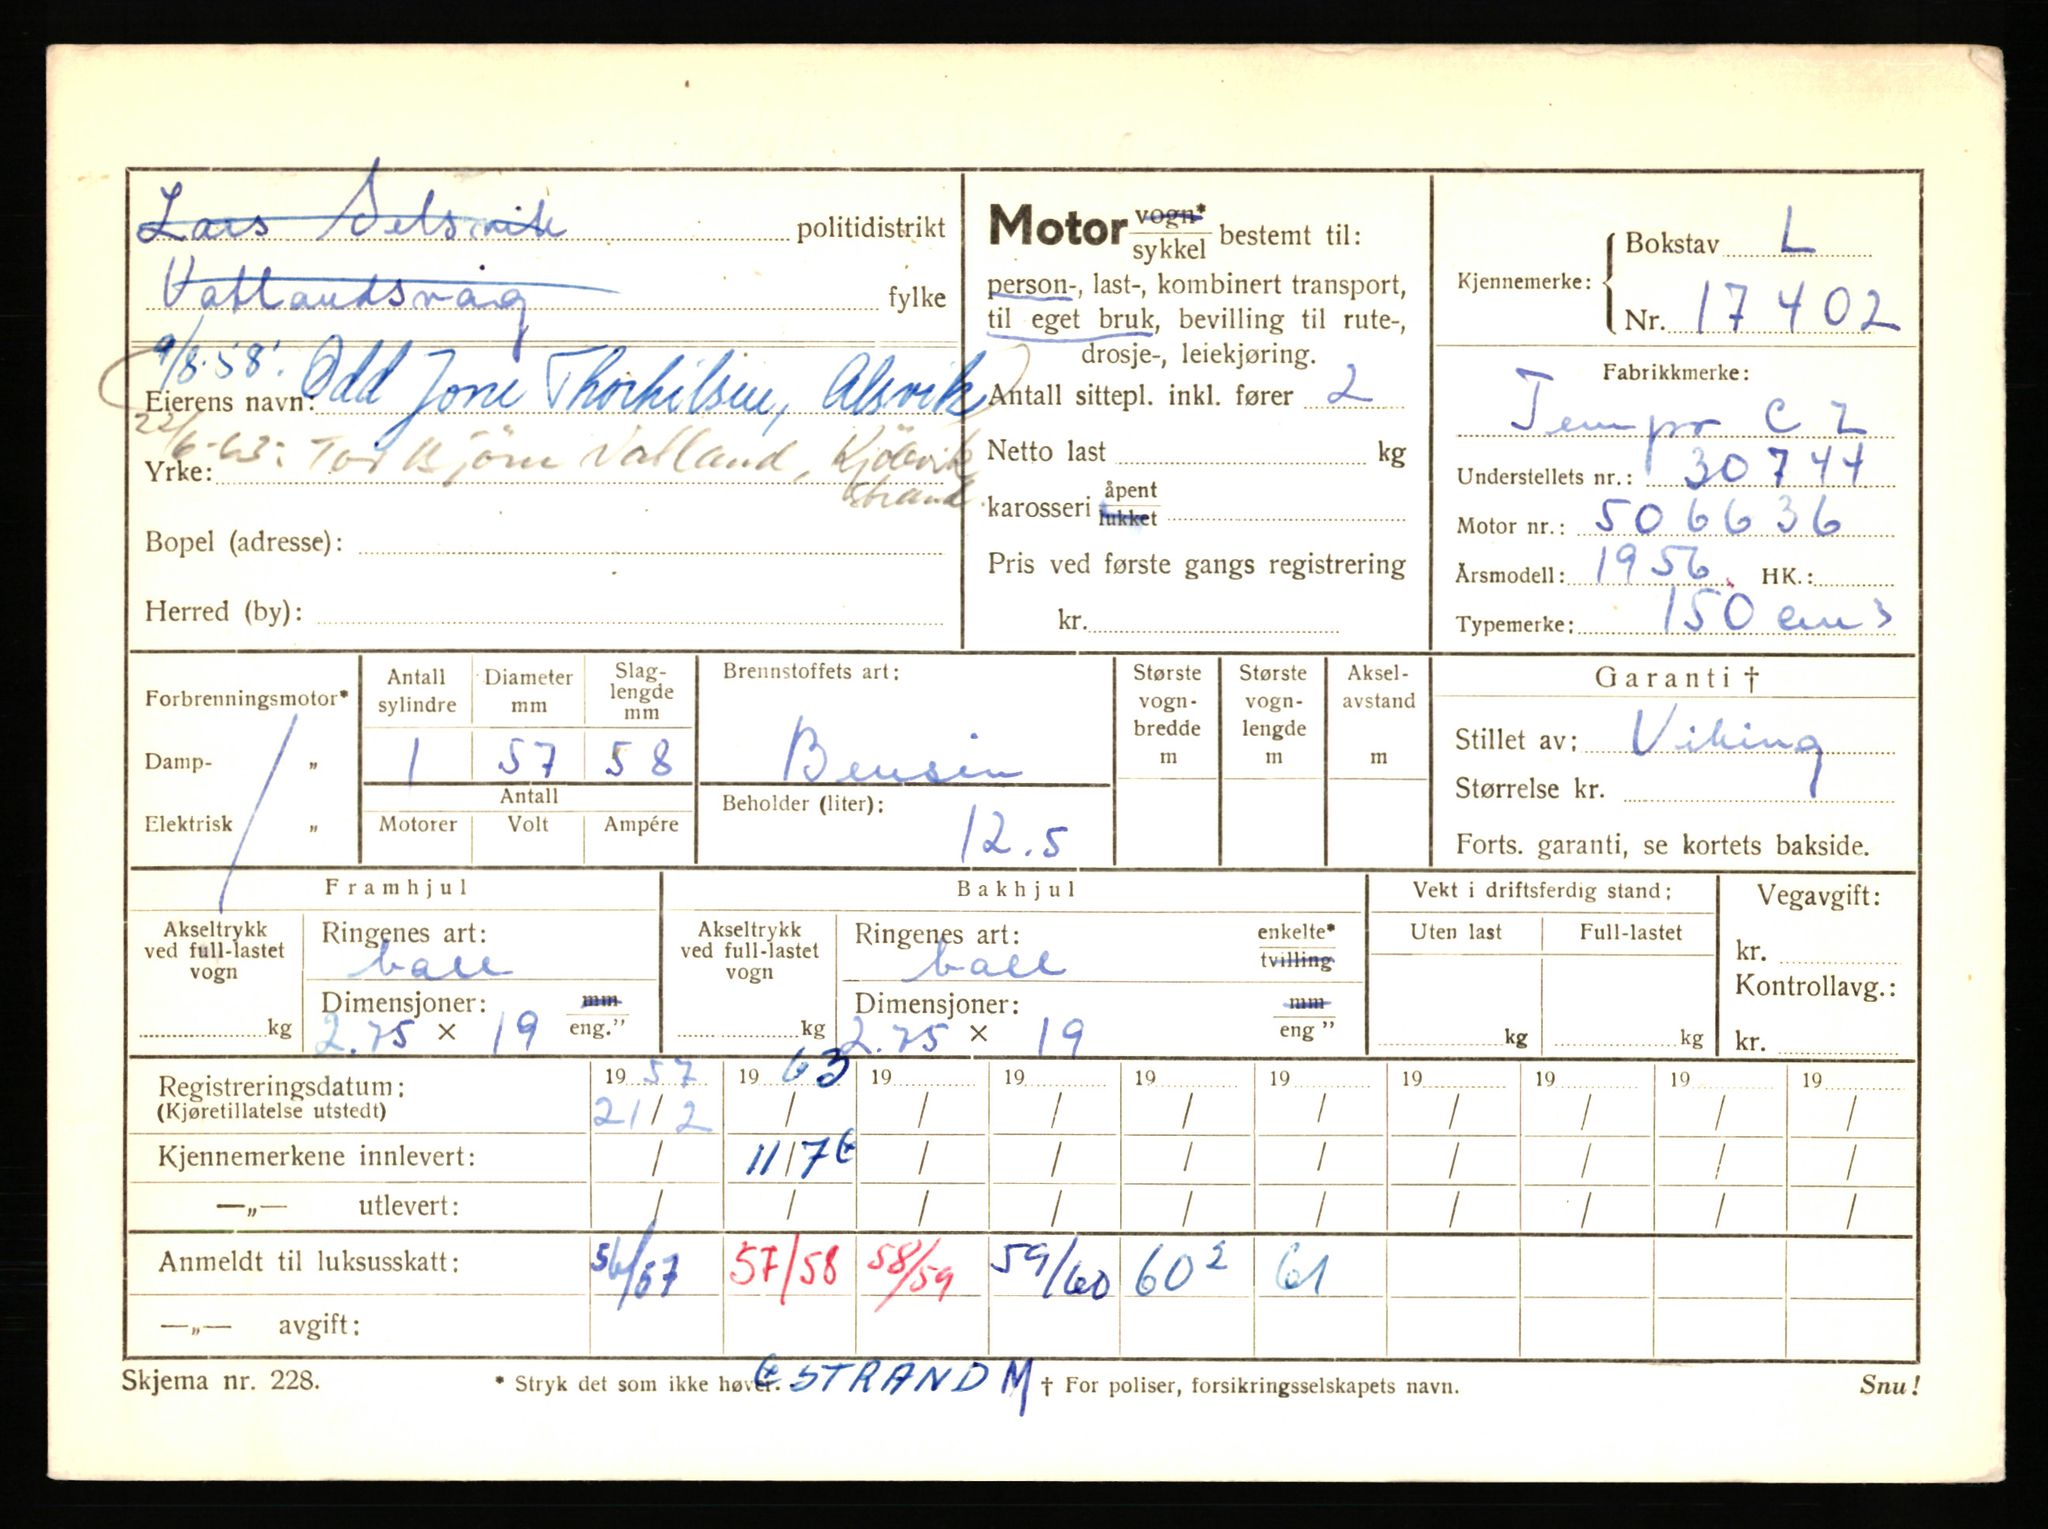 Lars Selsvik politidistrikt
Vatlandsvåg fylke
9/8-58: Odd Jone Thorkilsen, Alsvik
Eierens navn:
22/6-63: Torbjörn Valland, Kjölevik
Strand.
Yrke:
Bopel (adresse):
Herred (by):
Motor vogn* / sykkel bestemt til:
person-, last-, kombinert transport,
til eget bruk, bevilling til rute-,
drosje-, leiekjøring.
Antall sittepl. inkl. fører 2
Netto last kg
karosseri åpent / lukket
Pris ved første gangs registrering
kr.
Kjennemerke: Bokstav L
Nr. 17402
Fabrikkmerke:
Tempo CZ
Understellets nr.: 30744
Motor nr.: 506636
Årsmodell: 1956 HK.:
Typemerke: 150 cm3
Forbrenningsmotor*
Damp- „
Elektrisk „
Antall sylindre Diameter mm Slag-lengde mm
1 57 58
Antall
Motorer Volt Ampére
Brennstoffets art:
Bensin
Beholder (liter):
12.5
Største vogn-bredde m
Største vogn-lengde m
Aksel-avstand m
Garanti †
Stillet av: Viking
Størrelse kr.
Forts. garanti, se kortets bakside.
Framhjul
Akseltrykk ved full-lastet vogn
kg
Ringenes art:
ball
Dimensjoner: mm / eng."
2.75 × 19
Bakhjul
Akseltrykk ved full-lastet vogn
kg
Ringenes art: enkelte* / tvilling
ball
Dimensjoner: mm / eng"
2.75 × 19
Vekt i driftsferdig stand:
Uten last Full-lastet
kg kg
Vegavgift:
kr.
Kontrollavg.:
kr.
Registreringsdatum: 1957 1963 19 19 19 19 19 19 19 19
(Kjøretillatelse utstedt) 21/2 / / / / / / / / /
Kjennemerkene innlevert: / 11/7 / / / / / / / /
—„— utlevert: / / / / / / / / / /
Anmeldt til luksusskatt: 56/57 57/58 58/59 59/60 60² 61
—„— avgift:
Skjema nr. 228. * Stryk det som ikke høver. STRAND M † For poliser, forsikringsselskapets navn. Snu!